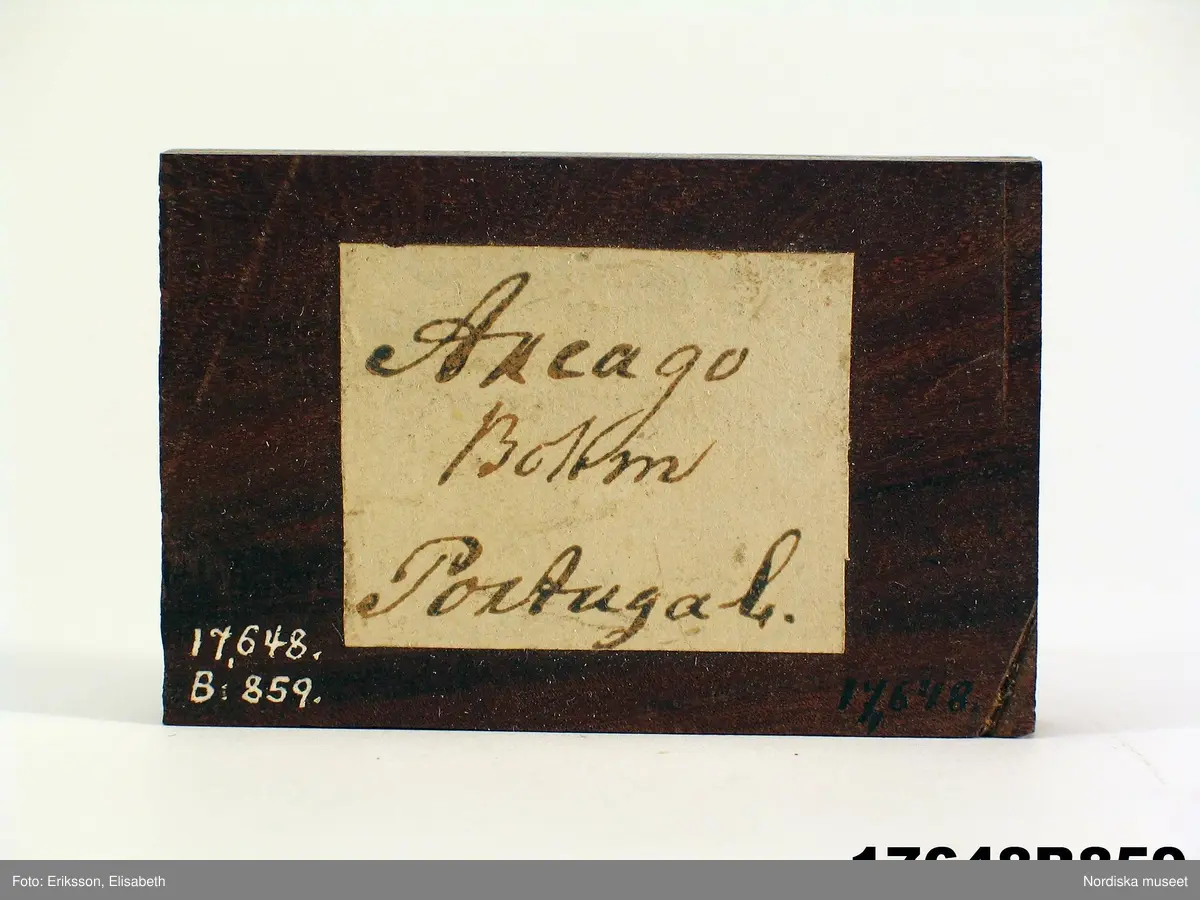 Axcago
Bohm
Portugal.
17,648.
B: 859.
17,648.
17648B859
Foto: Eriksson, Elisabeth
Nordiska museet